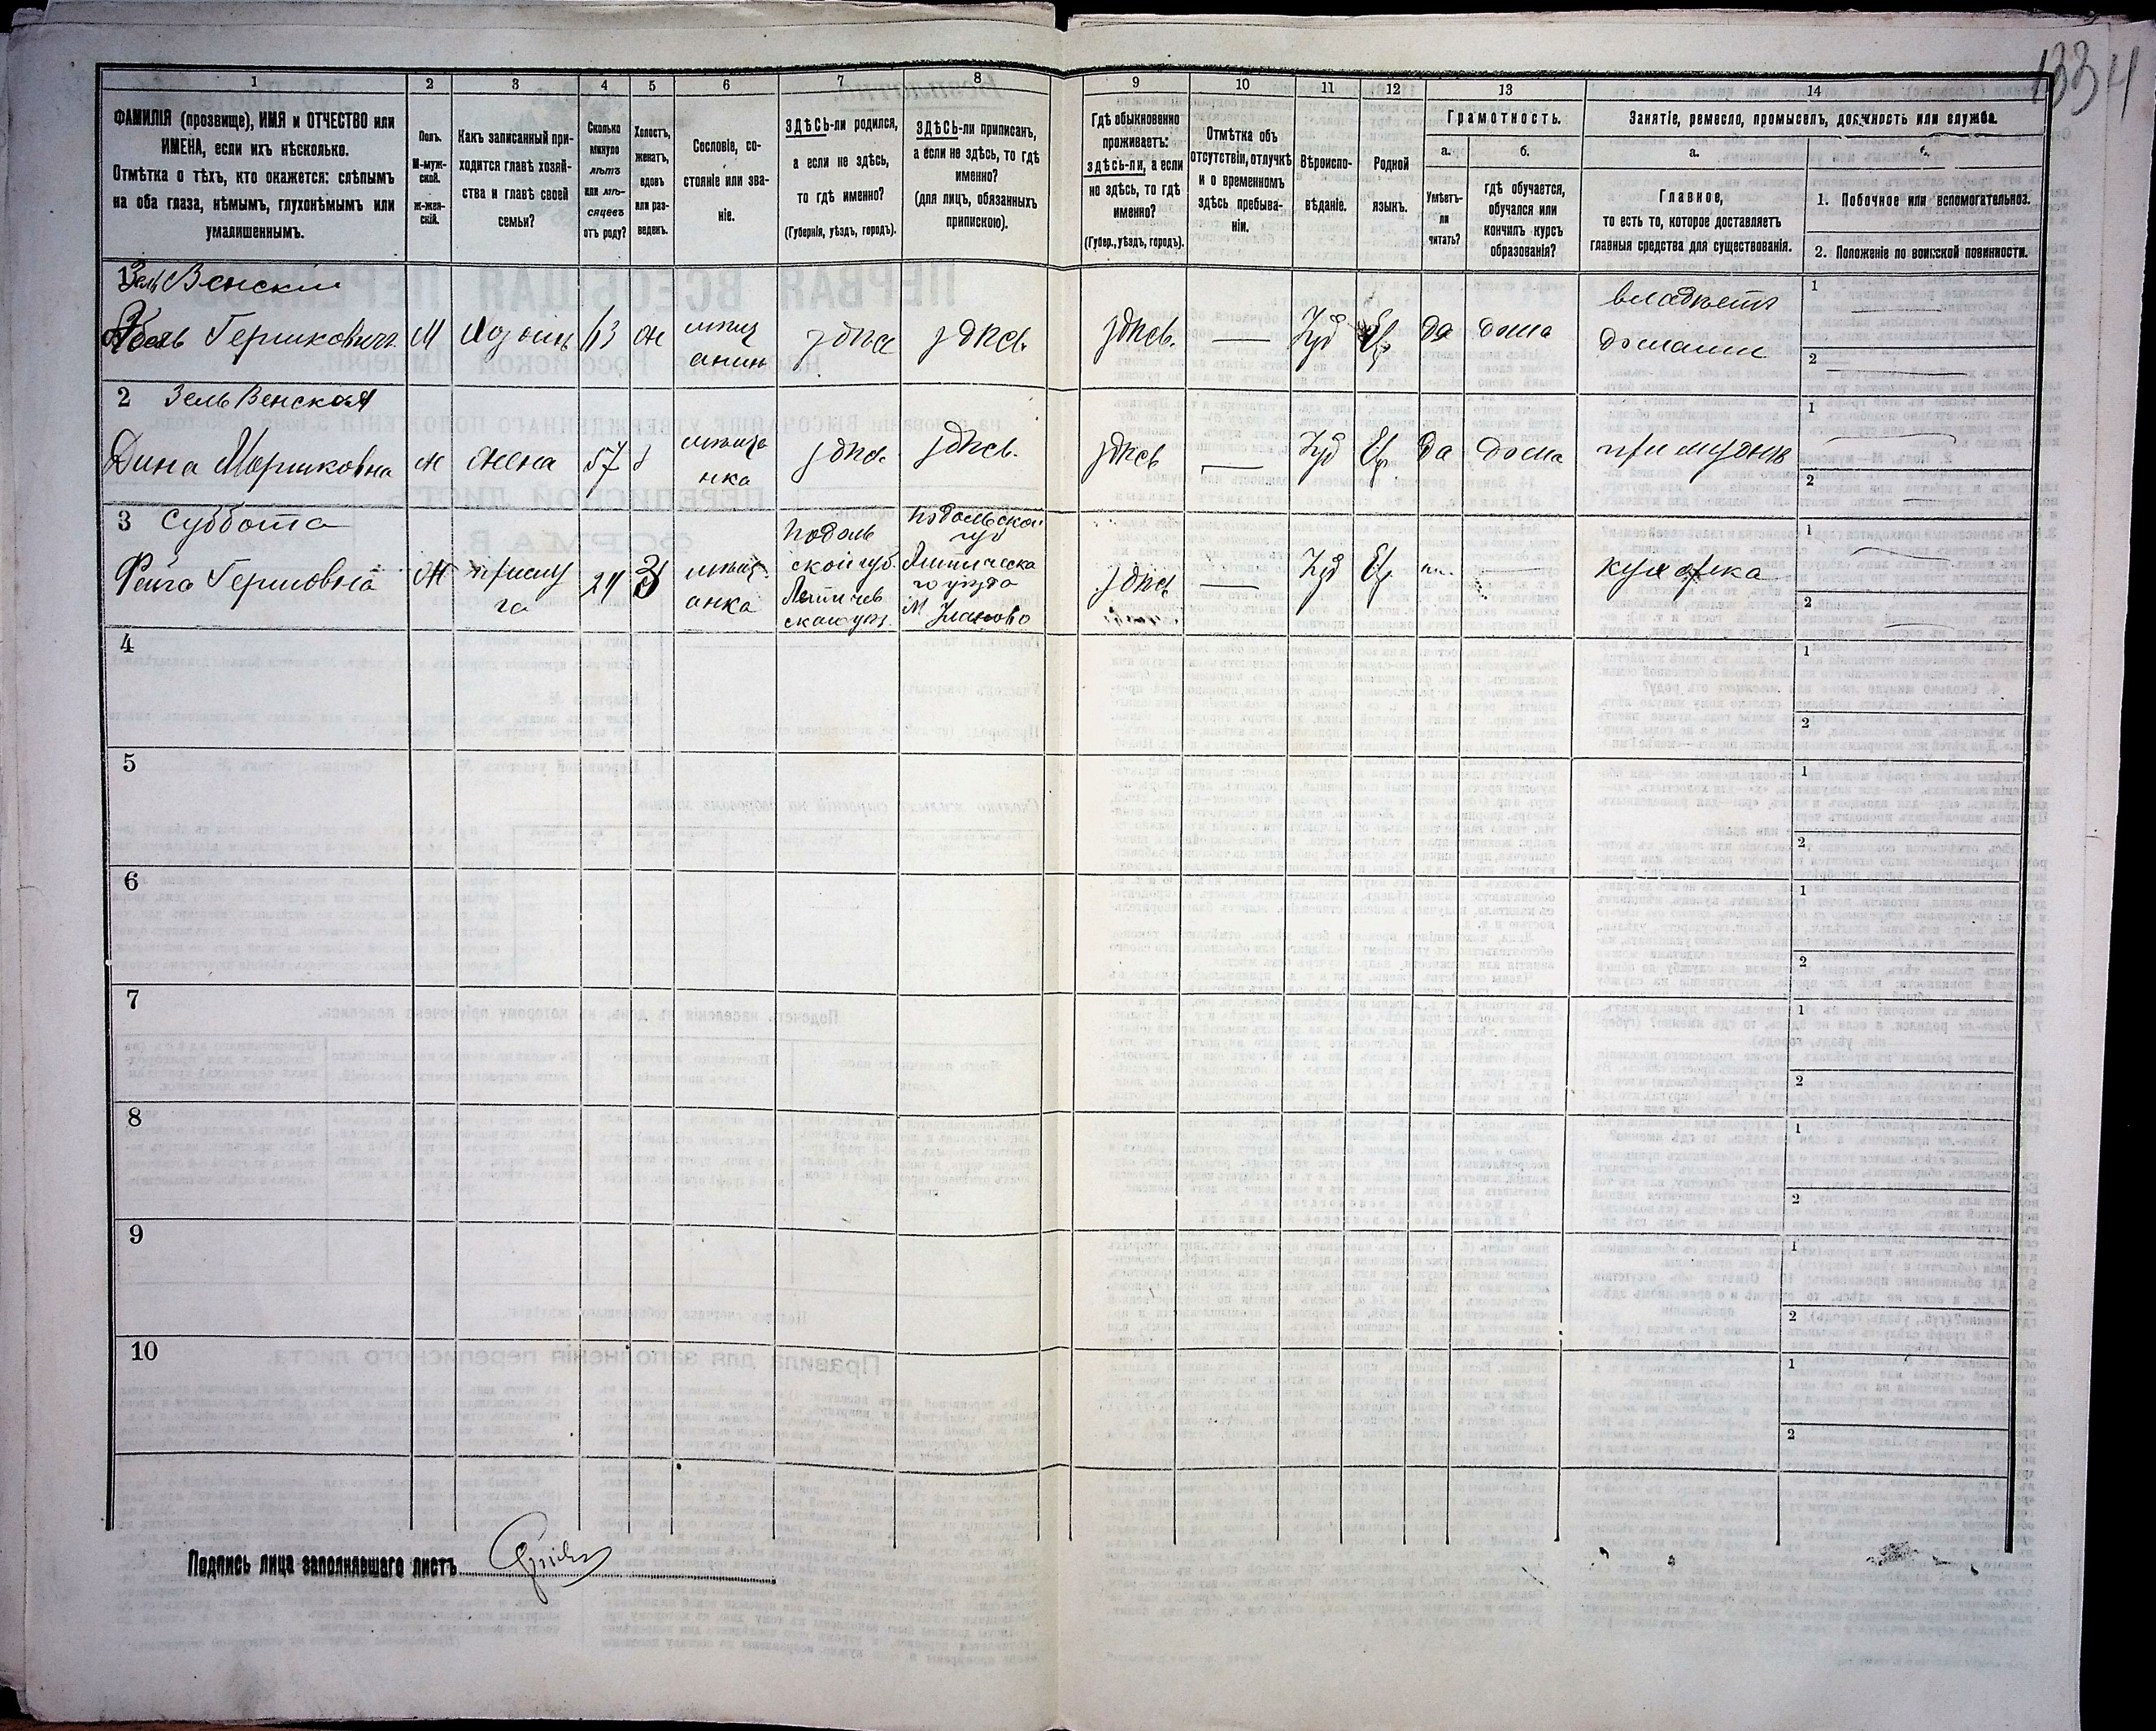 1334
1 2 3 4 5 6 7 8 9 10 11 12 13 14
ФАМИЛІЯ (прозвище), ИМЯ и ОТЧЕСТВО или
ИМЕНА, если ихъ нѣсколько.
Отмѣтка о тѣхъ, кто окажется: слѣпымъ
на оба глаза, нѣмымъ, глухонѣмымъ или
умалишеннымъ.
Полъ.
М-муж-
ской.
ж-жен-
скій.
Какъ записанный при-
ходится главѣ хозяй-
ства и главѣ своей
семьи?
Сколько
минуло
лѣтъ
или мѣ-
сяцевъ
отъ роду?
Холостъ,
женатъ,
вдовъ
или раз-
веденъ.
Сословіе, со-
стояніе или зва-
ніе.
ЗДѢСЬ-ли родился,
а если не здѣсь,
то гдѣ именно?
(Губернія, уѣздъ, городъ).
ЗДѢСЬ-ли приписанъ,
а если не здѣсь, то гдѣ
именно?
(для лицъ, обязанныхъ
припискою).
Гдѣ обыкновенно
проживаетъ:
здѣсь-ли, а если
не здѣсь, то гдѣ
именно?
(Губер., уѣздъ, городъ).
Отмѣтка объ
отсутствіи, отлучкѣ
и о временномъ
здѣсь пребыва-
ніи.
Вѣроиспо-
вѣданіе.
Родной
языкъ.
Грамотность.
а.
Умѣетъ-
ли
читать?
б.
гдѣ обучается,
обучался или
кончилъ курсъ
образованія?
Занятіе, ремесло, промыселъ, должность или служба.
а.
Главное,
то есть то, которое доставляетъ
главныя средства для существованія.
1. Побочное или вспомогательное.
2. Положеніе по воинской повинности.
1 ЗельВенскій
Гершковичъ М Хозяинъ 63 ж мѣщ
анинъ
здѣсь здѣсь. здѣсь. — Іуд Евр да дома
владѣетъ
домами
1 —
2 —
2 ЗельВенская
Дина Моршковна ж жена 57 з мѣща
нка
здѣсь здѣсь. здѣсь — Іуд Ев да дома при мужѣ
1 —
2 —
3 Суббота
Фейга Гершовна Ж прислу
га
24 З мѣщ.
анка
Подоль
ской губ.
Летичев
скаго уѣз.
Подольской
губ
Летическа
го уѣзда
М Уланово
здѣсь — Іуд Ев. — кухарка
1 —
2 —
4 1
2
5 1
2
6 1
2
7 1
2
8 1
2
9 1
2
10 1
2
Подпись лица заполнявшаго листъ